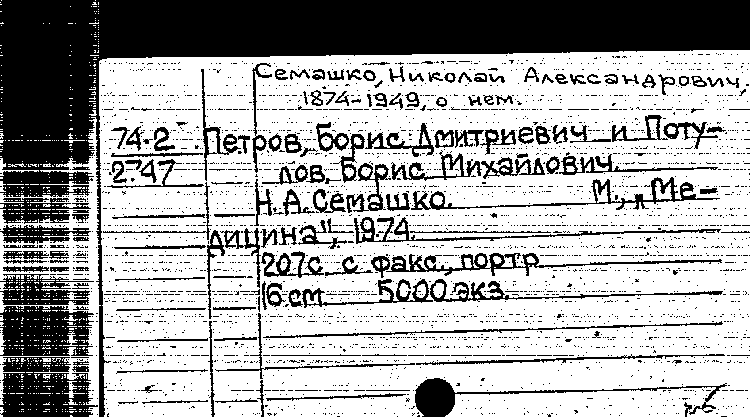 Семашко, Николай Александрович,
1874-1949, о нем.
74-2 Петров, Борис Дмитриевич и Поту-
2.47 лов, Борис Михайлович.
Н.А. Семашко. М., „Ме-
дицина", 1974.
207с. с факс., портр.
16 см. 5000 экз.